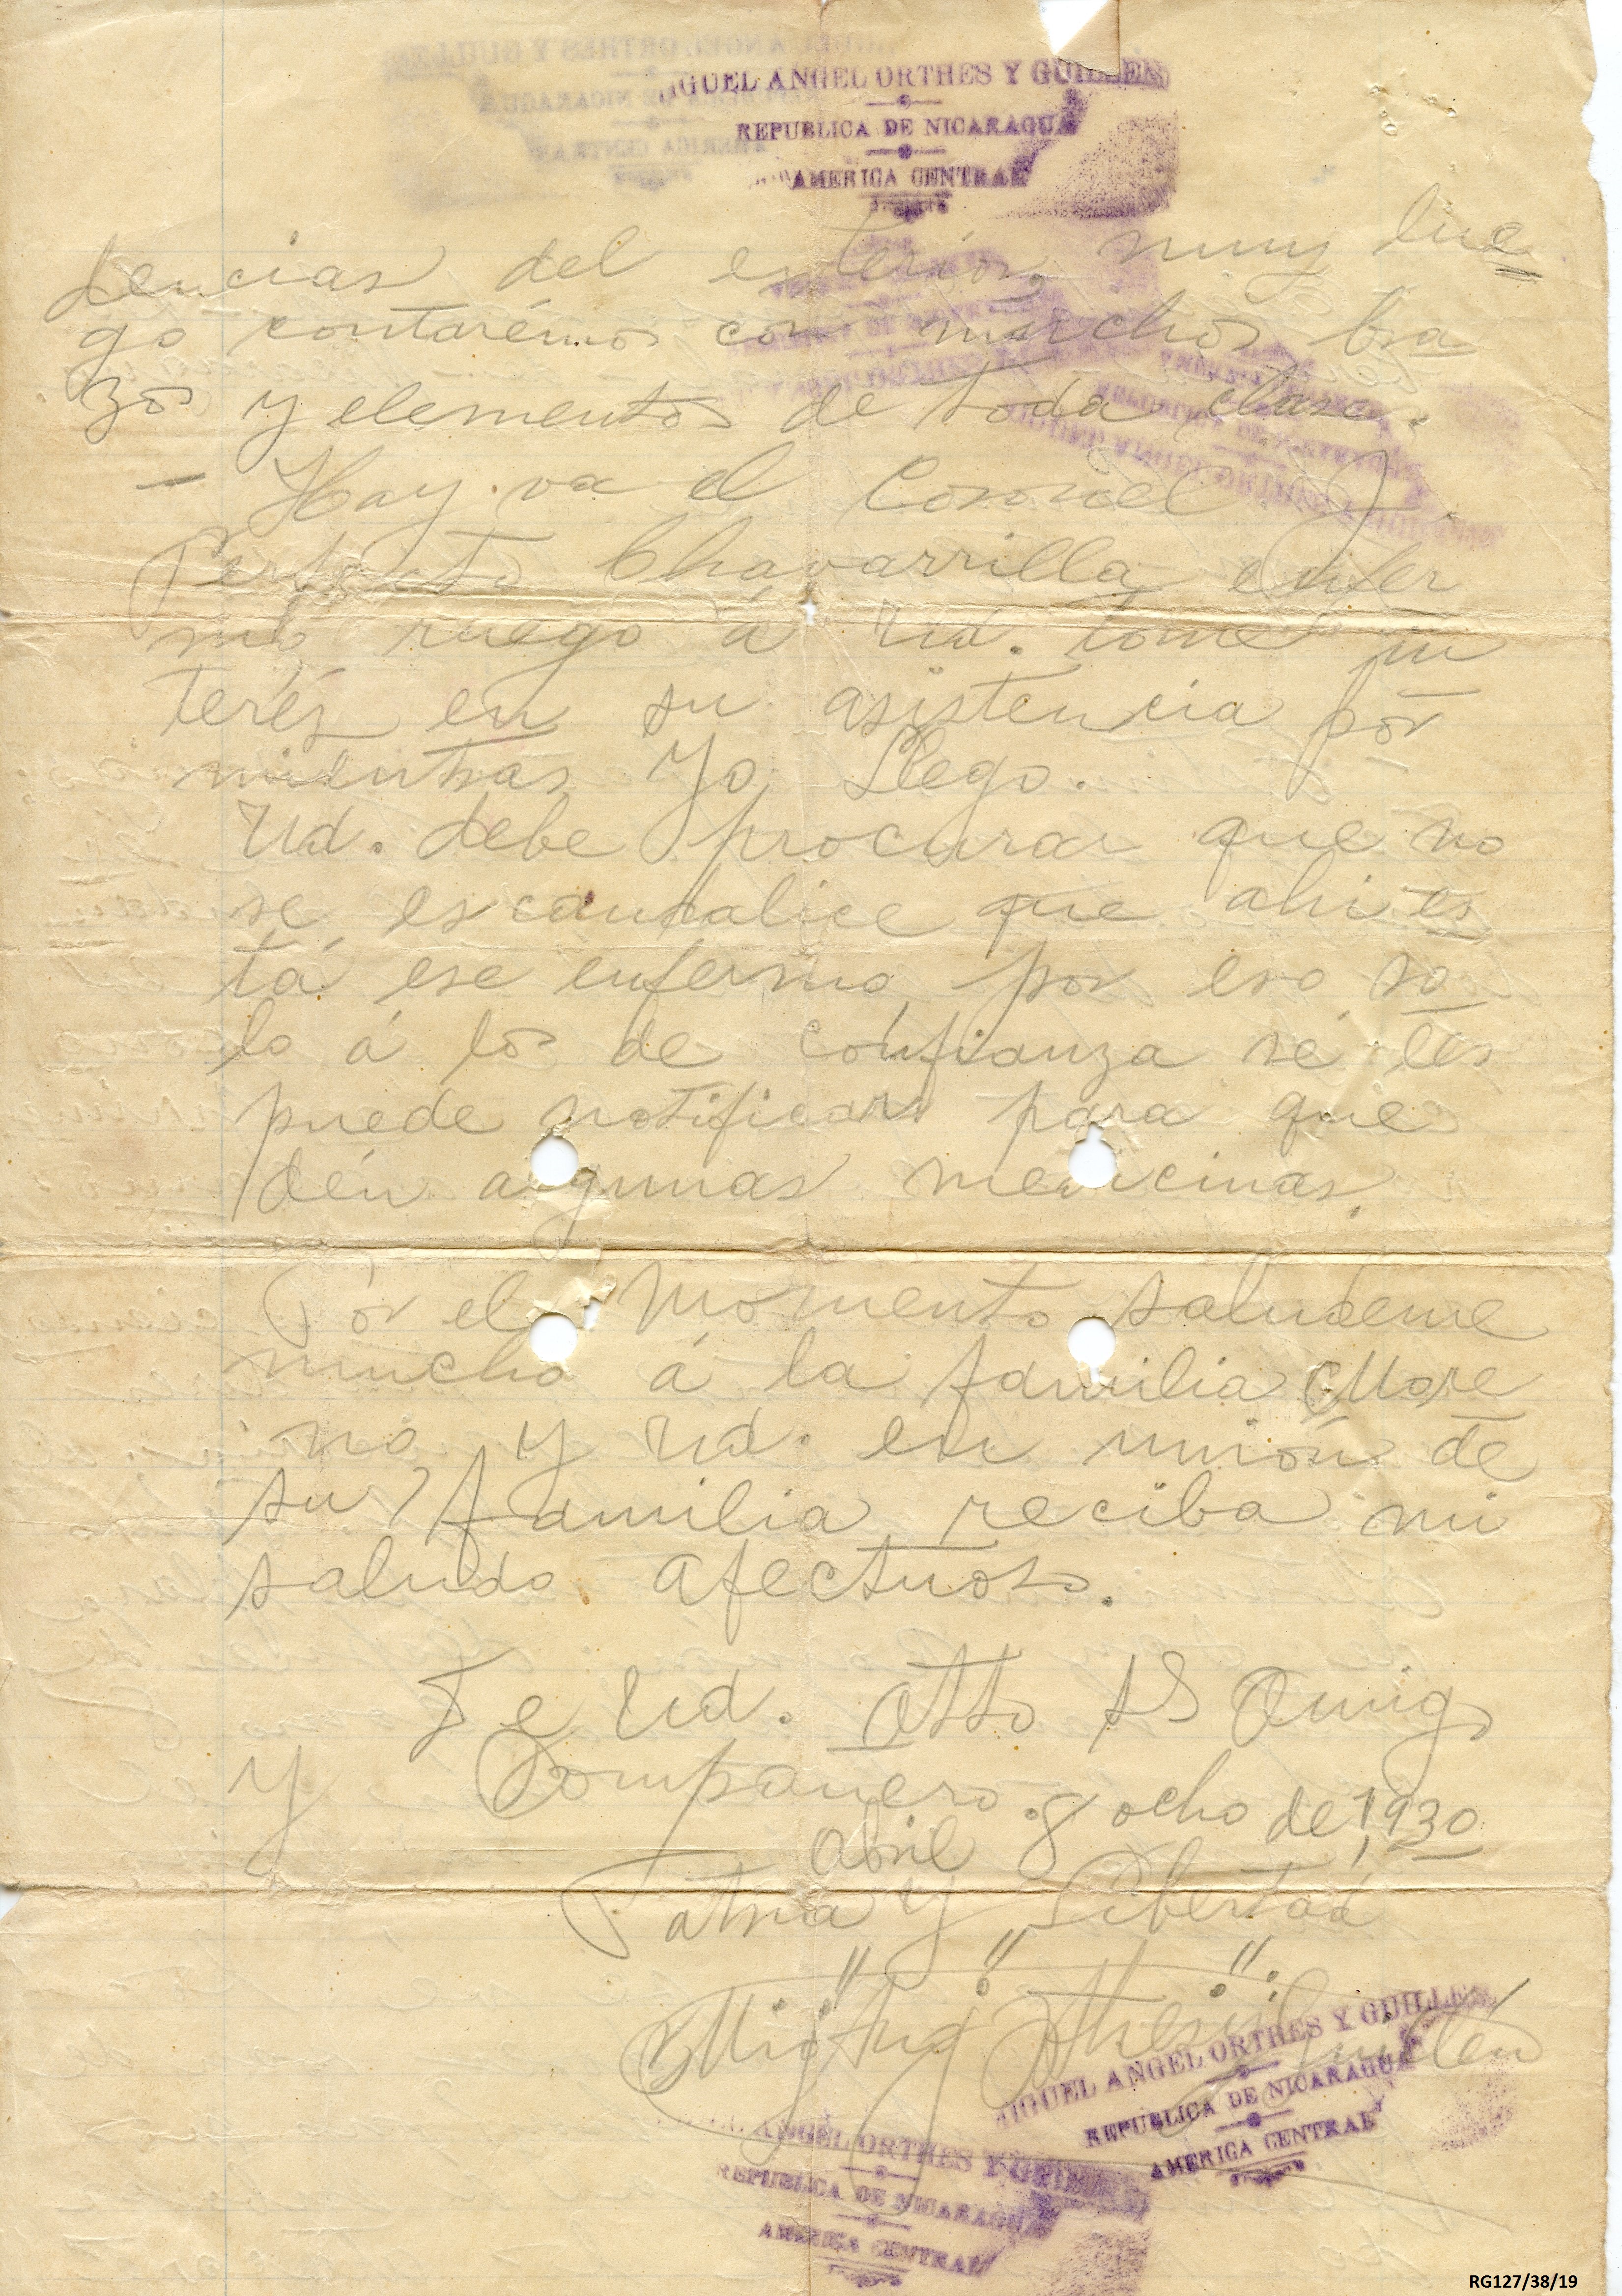 MIGUEL ANGEL ORTHES Y GUILLEN
REPUBLICA DE NICARAGUA
AMERICA CENTRAL
dencias del exterior, muy lue
go contarémos con muchos bra
zos y elementos de toda clase.
- Hay va el Coronel J.
Perfecto Chavarrilla enfer
mo ruego á Ud. tome in
terés en su asistencia por
mientras Yo Llego.
Ud. debe procurar que no
se escandalice que ahi es
tá ese enfermo, por eso so
lo á los de confianza sé les
puede notificar para que
dén algunas medicinas.
Por el momento saludeme
mucho á la familia More
no y Ud. en unión de
su familia reciba mi
saludo afectuoso.
De Ud. Atto SS Amigo
y Compañero.
Abril 8 ocho de 1930
Patria y Libertad
Mig Ang Orthes y Guillén
MIGUEL ANGEL ORTHES Y GUILLEN
REPUBLICA DE NICARAGUA
AMERICA CENTRAL
ANGEL ORTHES Y GUILLEN
REPUBLICA DE NICARAGUA
AMERICA CENTRAL
RG127/38/19